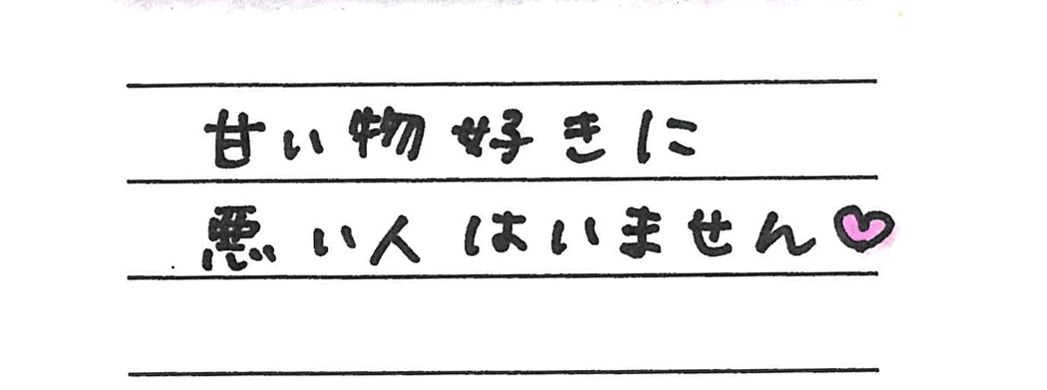 甘い物好きに
悪い人はいません♡